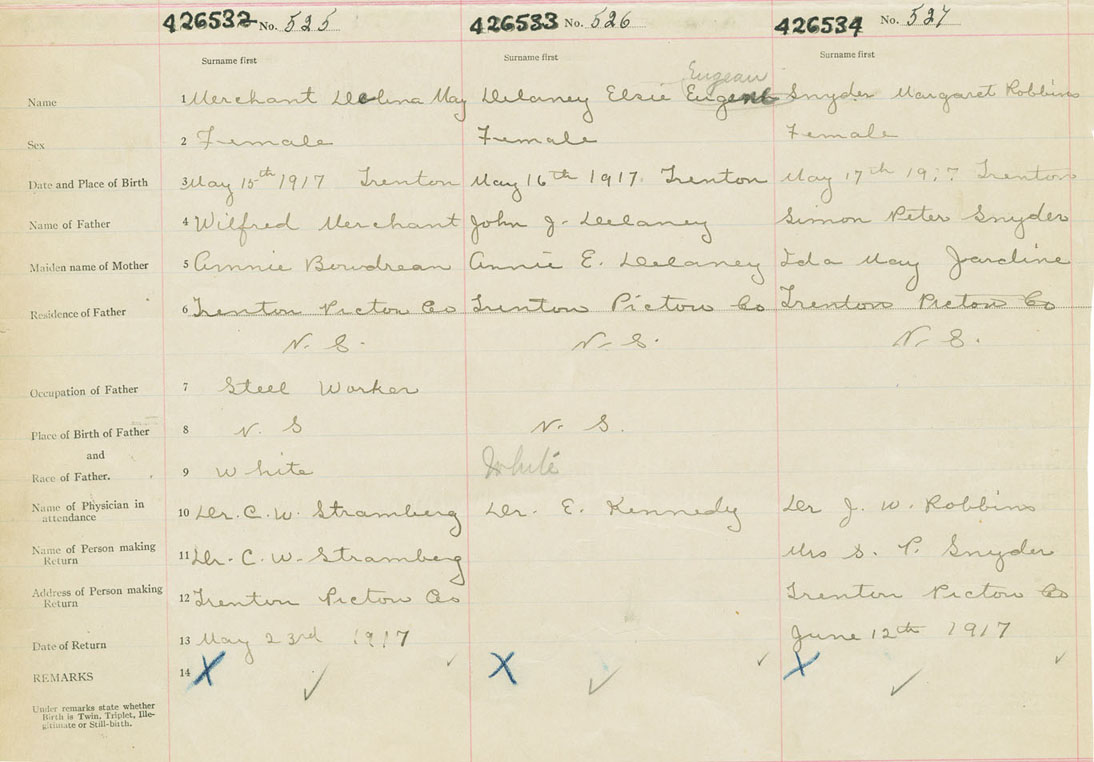 426532 No. 525 426533 No. 526 426534 No. 527
Surname first Surname first Surname first
Eugean
Name 1 Merchant Delina May Delaney Elsie Snyder Margaret Robbins
Sex 2 Female Female Female
Date and Place of Birth 3 May 15th 1917 Trenton May 16th 1917. Trenton May 17th 1917 Trenton
Name of Father 4 Wilfred Merchant John J. Delaney Simon Peter Snyder
Maiden name of Mother 5 Annie Bowdrean Annie E. Delaney Ida May Jardine
Residence of Father 6 Trenton Pictou Co Trenton Pictou Co Trenton Pictou Co
N. S. N. S. N. S.
Occupation of Father 7 Steel Worker
Place of Birth of Father 8 N. S N. S.
and
Race of Father. 9 White White
Name of Physician in
attendance 10 Dr. C. W. Stramberg Dr. E. Kennedy Dr J. W. Robbins
Name of Person making
Return 11 Dr. C. W. Stramberg Mrs S. P. Snyder
Address of Person making
Return 12 Trenton Pictou Co Trenton Pictou Co
Date of Return 13 May 23rd 1917 June 12th 1917
REMARKS 14 X X X
Under remarks state whether
Birth is Twin, Triplet, Ille-
gitimate or Still-birth.